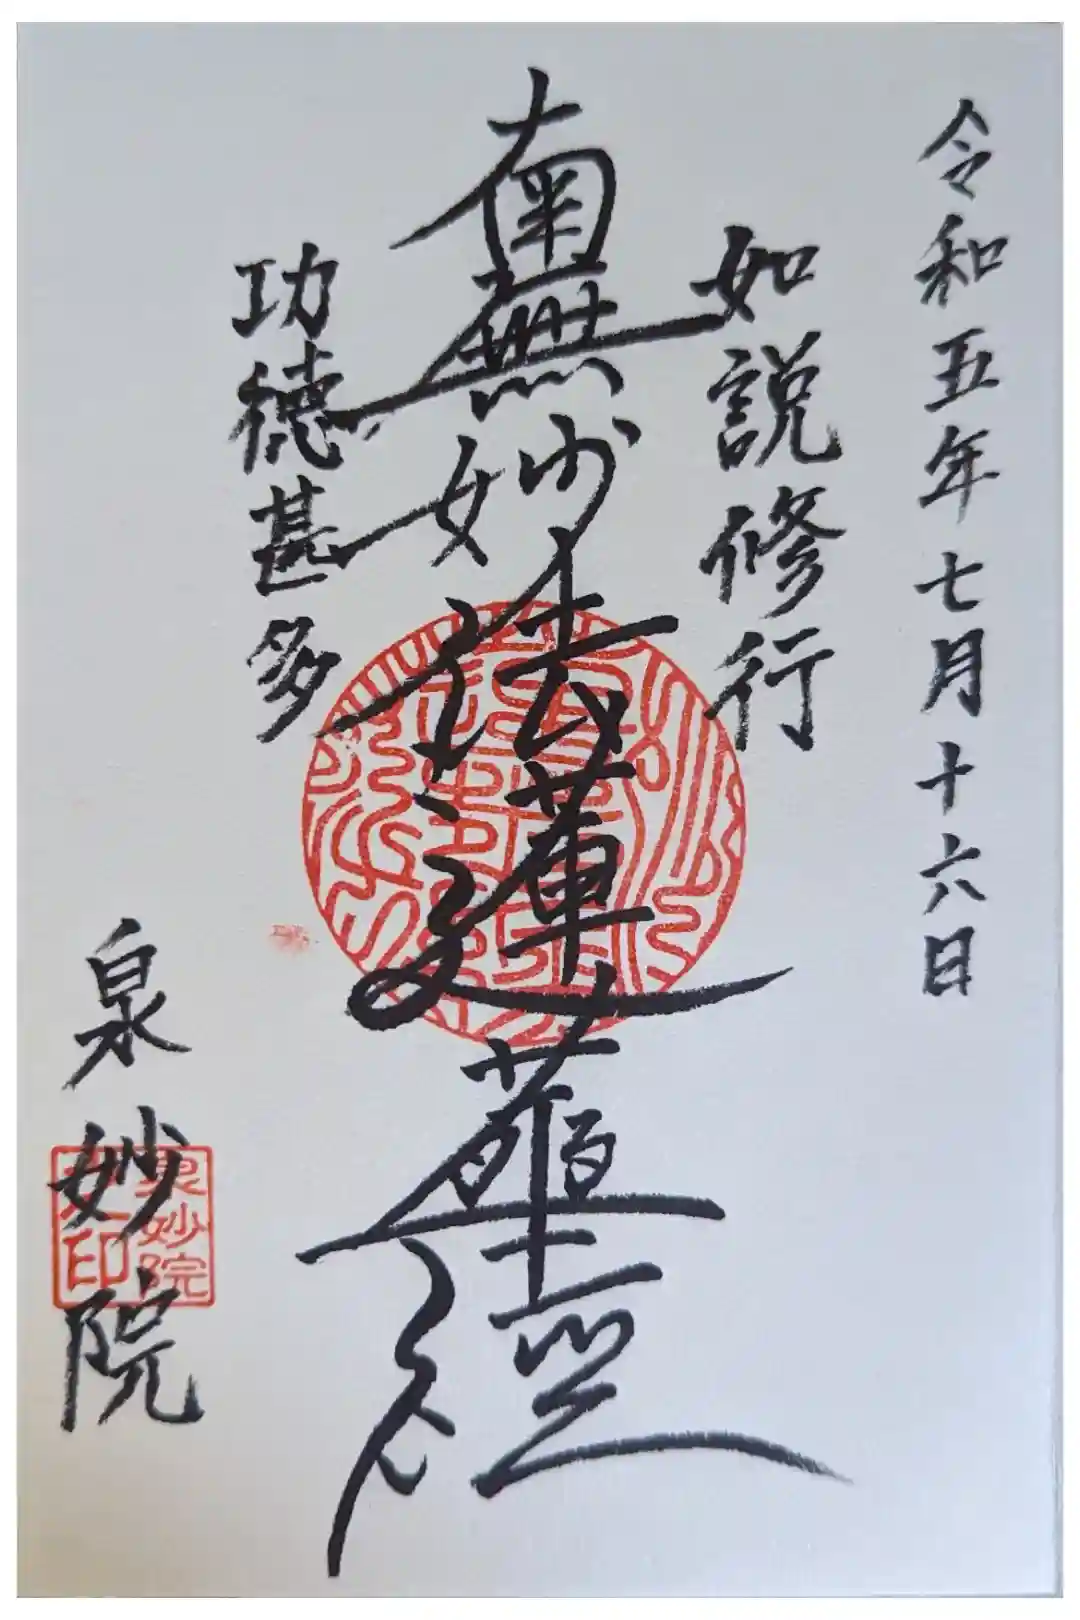 令和五年七月十六日
如説修行
南無妙法蓮華経
功徳甚多
泉妙院
泉妙院
印